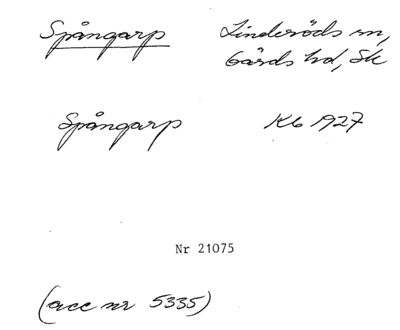 Spångarp Linderöds sn,
Gärds hd, Sk
Spångarp Kb 1927
Nr 21075
(acc nr 5335)